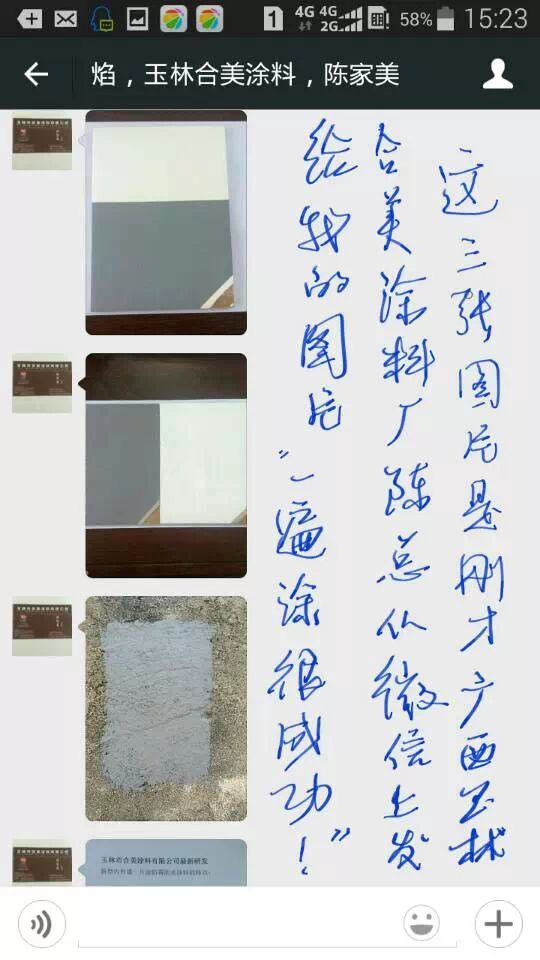 1 4G 4G 2G 58% 15:23
焰，玉林合美涂料，陈家美
这三张图片是刚才广西玉林
合美涂料厂陈总从微信上发
给我的图片“一遍涂很成功！”
玉林市合美涂料有限公司最新研发